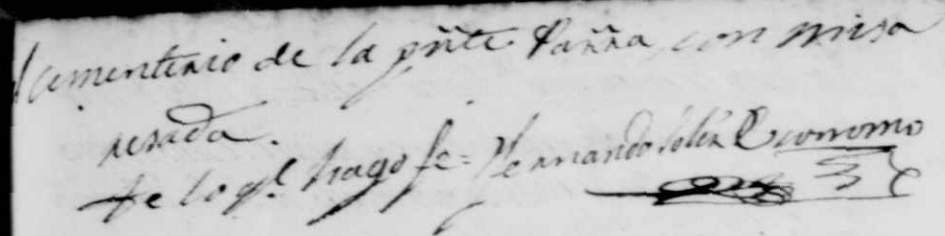 cementerio de la pñte Parña, con misa
resada.
de lo q.e hago fe = Fernando Ecconomo